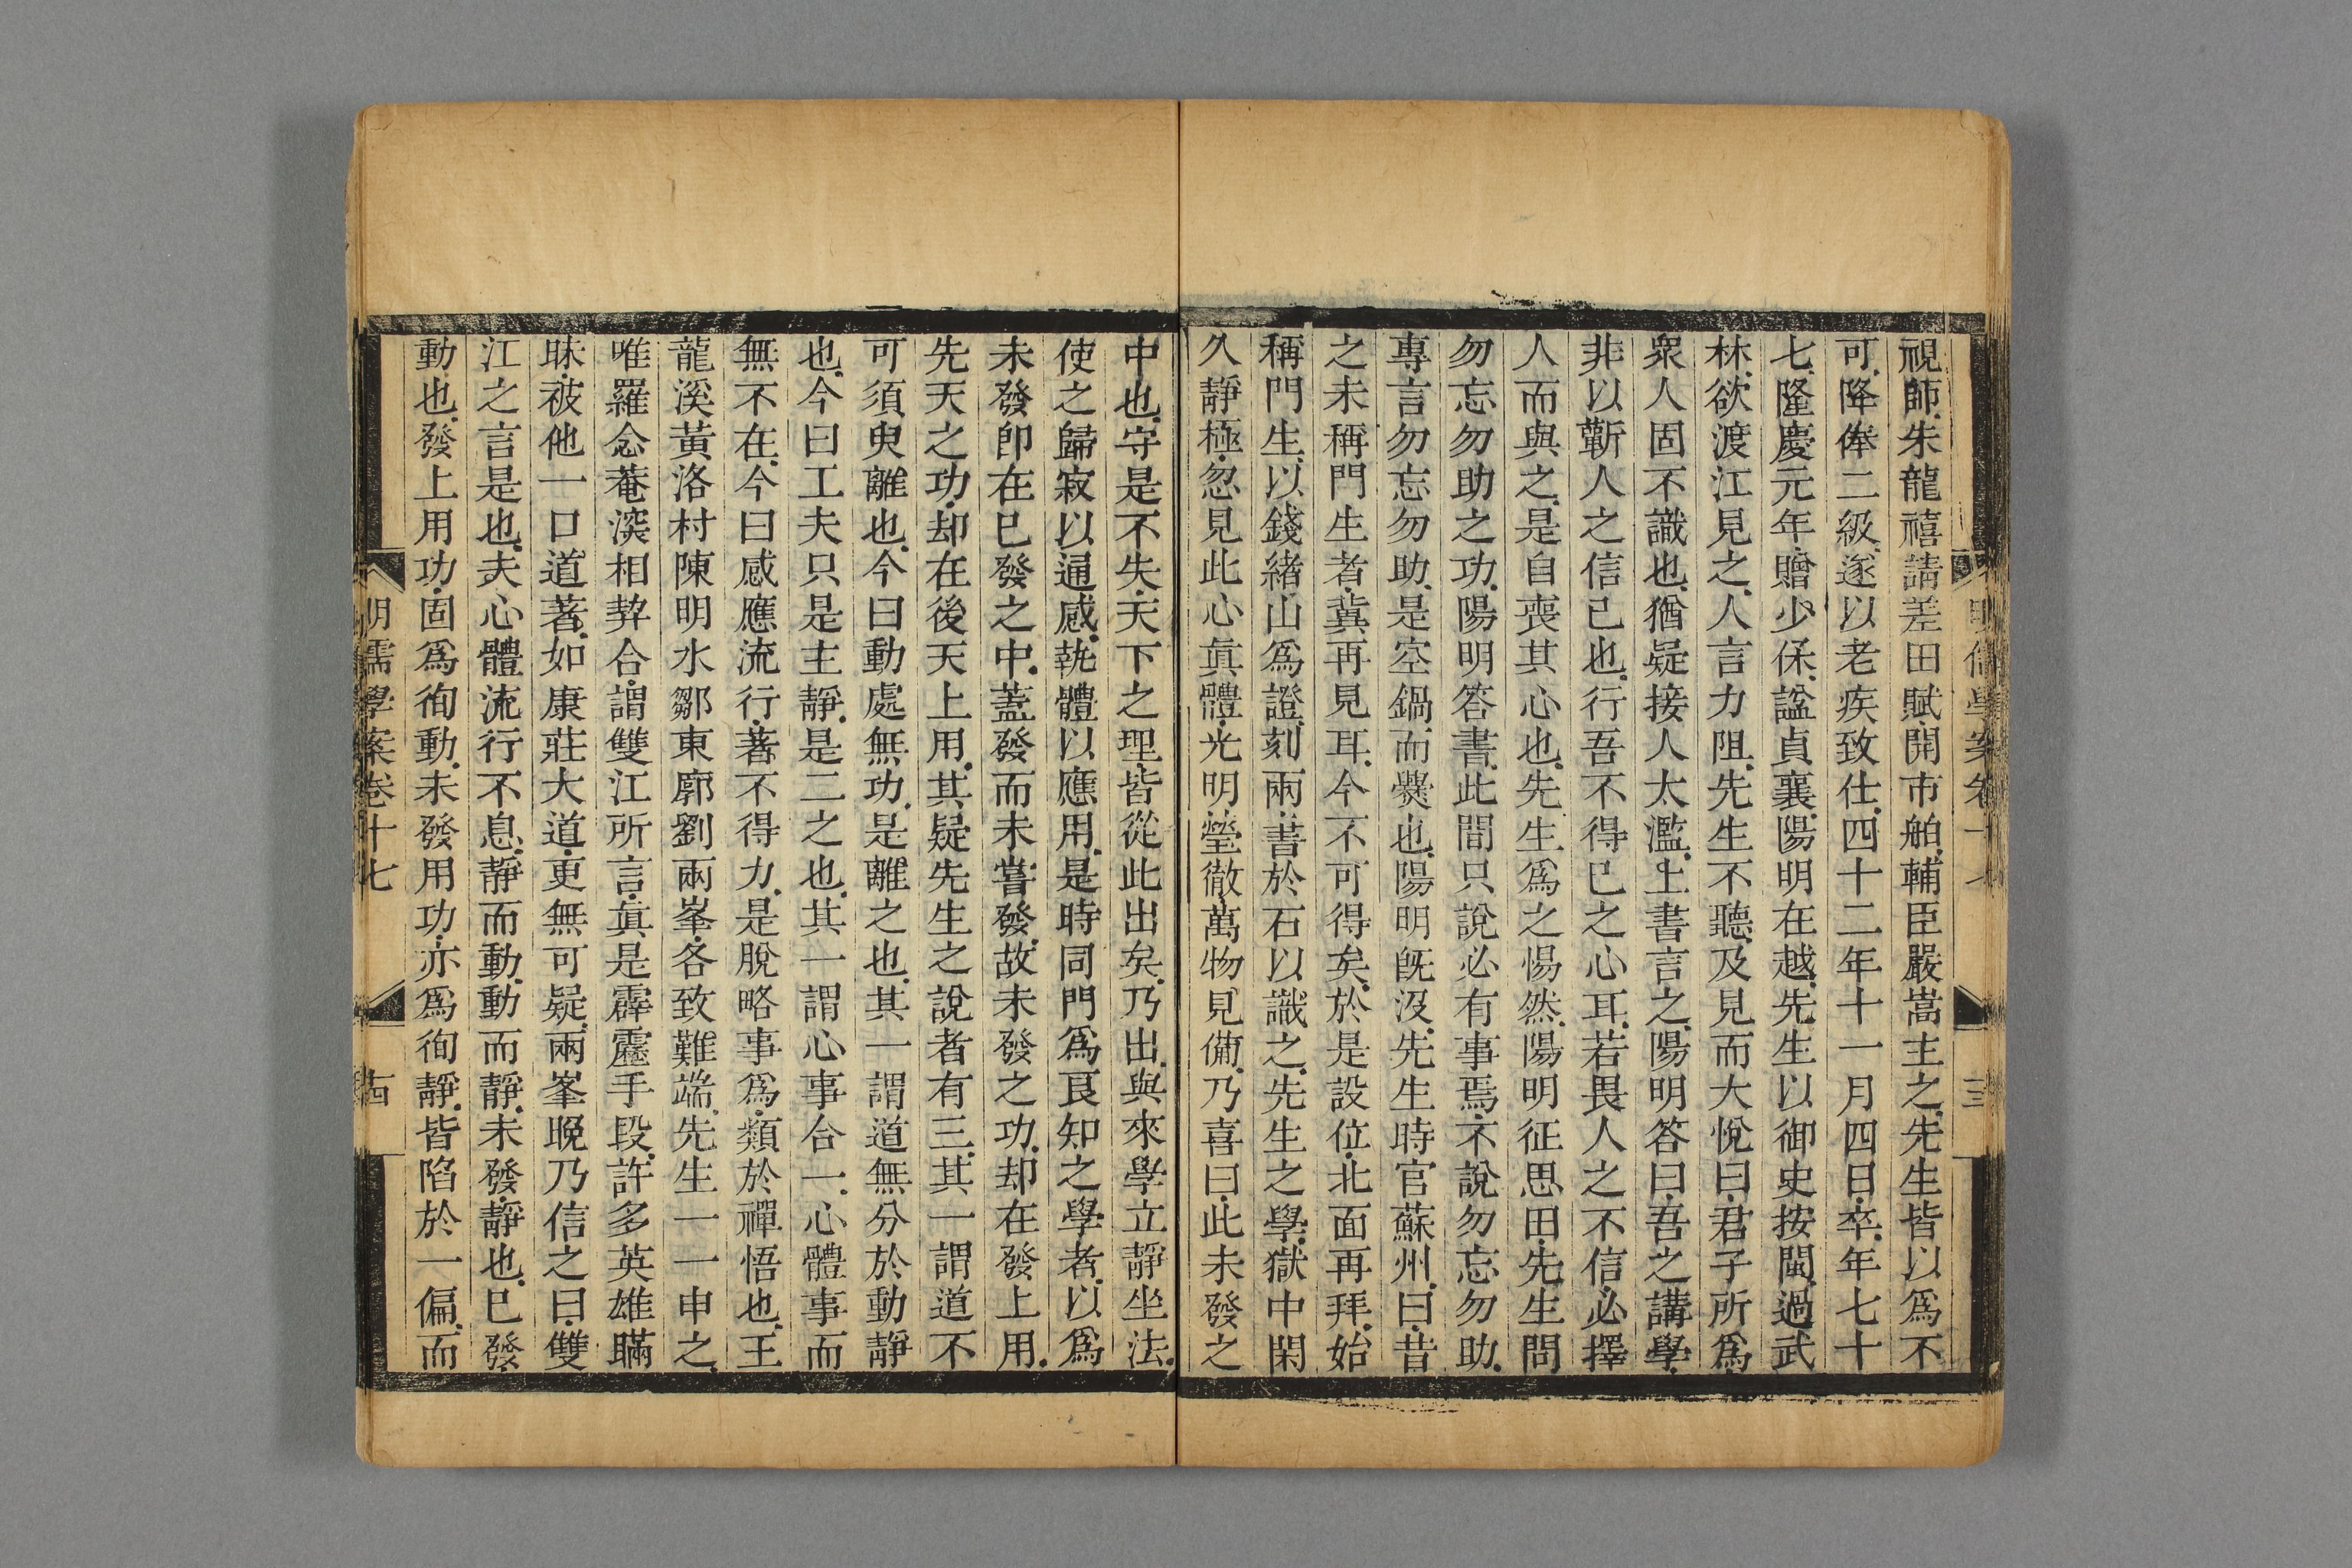 視師.朱龍禧請差田賦.開市舶.輔臣嚴嵩主之.先生皆以爲不
可.降俸二級.遂以老疾致仕.四十二年十一月四日.卒.年七十
七.隆慶元年.贈少保.諡貞襄.陽明在越.先生以御史按閩.過武
林.欲渡江見之.人言力阻.先生不聽.及見而大悅曰.君子所爲.
衆人固不識也.猶疑接人太濫.上書言之.陽明答曰.吾之講學.
非以蘄人之信已也.行吾不得已之心耳.若畏人之不信.必擇
人而與之.是自喪其心也.先生爲之惕然.陽明征思田.先生問
勿忘勿助之功.陽明答書.此間只說必有事焉.不說勿忘勿助.
專言勿忘勿助.是空鍋而爨也.陽明旣沒.先生時官蘇州.曰.昔
之未稱門生者.冀再見耳.今不可得矣.於是設位.北面再拜.始
稱門生.以錢緒山爲證.刻兩書於石以識之.先生之學.獄中閑
久靜極.忽見此心眞體.光明瑩徹.萬物見備.乃喜曰.此未發之
中也.守是不失.天下之理皆從此出矣.乃出.與來學立靜坐法.
使之歸寂以通感.執體以應用.是時同門爲良知之學者.以爲
未發卽在已發之中.蓋發而未嘗發.故未發之功.却在發上用.
先天之功.却在後天上用.其疑先生之說者有三.其一謂道不
可須臾離也.今曰動處無功.是離之也.其一謂道無分於動靜
也.今曰工夫只是主靜.是二之也.其一謂心事合一.心體事而
無不在.今曰感應流行.著不得力.是脫略事爲.類於禪悟也.王
龍溪黃洛村陳明水鄒東廓劉兩峯.各致難端.先生一一申之.
唯羅念菴深相契合.謂雙江所言.眞是霹靂手段.許多英雄瞞
昧.被他一口道著.如康莊大道.更無可疑.兩峯晚乃信之.曰.雙
江之言是也.夫心體流行不息.靜而動.動而靜.未發.靜也.已發.
動也.發上用功.固爲徇動.未發用功.亦爲徇靜.皆陷於一偏.而
明儒學案卷十七